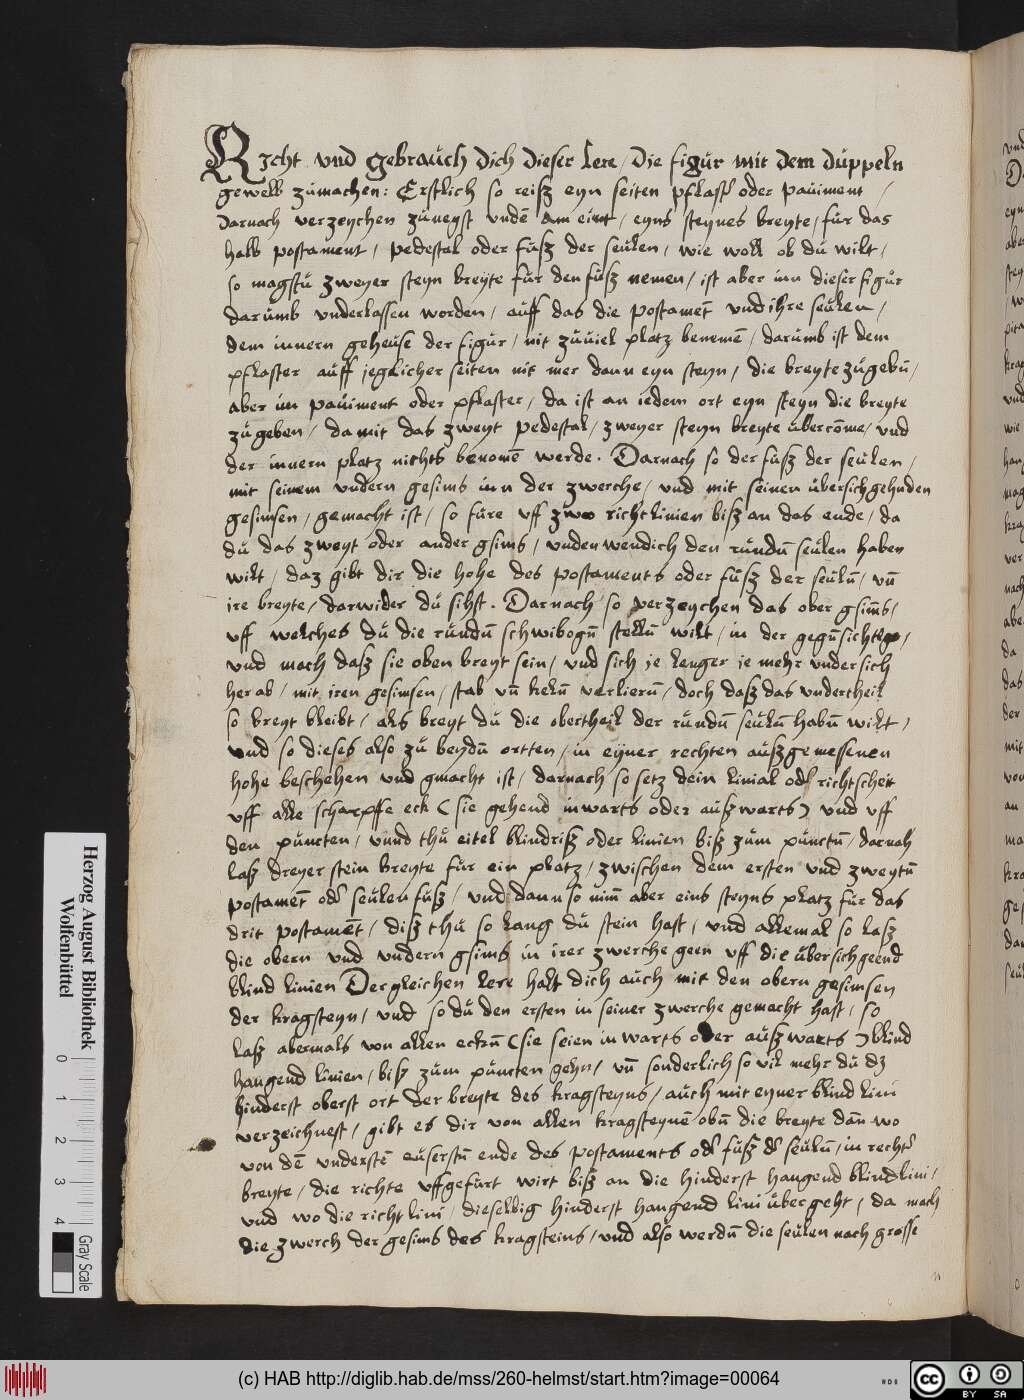 Richt und gebrauch dich dieser lere / die figur mit dem duppeln
gewelb zumachen: Erstlich so reisz eyn seiten pflast oder paviment /
Darnach verzeychen zuneyst undē am eint / eyns steynes breyte / fur das
halb postament / pedestal oder fusz der seulen / wie woll ob du wilt /
so magstu zweyer steyn breyte fur den fusz nemen / ist aber inn dieser figur
darumb underlassen worden / auff das die postamēt und ihre seulen /
dem innern geheuse der figur / nit zuviel platz benemē / darumb ist dem
pflaster auff jeglicher seiten nit mer dann eyn steyn / die breyte zugebn̄ /
aber im paviment oder pflaster / da ist an iedem ort eyn steyn die breyte
zugeben / damit das zweyt pedestal / zweyer steyn breyte ubercōme / und
der innern platz nichts benomē werde. Darnach so der fusz der seulen /
mit seinem undern gesims inn der zwerche / und mit seinen ubersichgehnden
gesimsen / gemacht ist / so fure uff zwo richtlinien bisz an das ende / da
du das zweyt oder ander gsims / unden wendich den rundn̄ seulen haben
wilt / daz gibt dir die hohe des postaments oder fusz der seuln̄ / un̄
ire breyte / darwider du sihst. Darnach so verzeychen das ober gsim̄s /
uff welches du die rundn̄ schwibogn̄ stelln̄ wilt / in der gegn̄sichtige /
und mach dasz sie oben breyt sein / und sich je lenger je mehr undersich
herab / mit iren gesimsen / stab un̄ keln̄ verliern̄ / doch dasz das undertheil
so breyt bleibt / als breyt du die obertheil der rundn̄ seuln̄ habn̄ wilt /
und so dieses also zu beydn̄ ortten / in eyner rechten auszgemessenen
hohe beschehen und gmacht ist / darnach so setz dein linial od richtscheit
uff alle scharpffe eck ( sie gehend inwarts oder auszwarts ) und uff
den puncten / unnd thu eitel blindrisz oder linien bisz zum punctn̄ / darnah
lasz dreyer stein breyte fur ein platz / zwischen dem ersten und zweytn̄
postamēt od seulen fusz / und dann so nim̄ aber eins steyns platz fur das
drit postamēt / disz thu so lang du stein hast / und allemal so lasz
die obern und undern gsims in irer zwerche geen uff die ubersichgeend
blind linien Dergleichen lere halt dich auch mit den obern gesimsen
der kragsteyn / und so du den ersten in seiner zwerche gemacht hast / so
lasz abermals von allen eckn̄ ( sie seien inwarts oder auszwarts ) blind
hangend linien / bisz zum puncten gehn / un̄ sonderlich so vil mehr du dz
hinderst oberst ort der breyte des kragsteyns / auch mit eyner blind lini
verzeichnest / gibt es dir von allen kragsteynē obn̄ die breyte dan̄ wo
von dē understē euserstn̄ ende des postaments od fusz d seuln̄ / in recht
breyte / die richte uffgefurt wirt bisz an die hinderst hangend blindlini /
und wo die richtlini / dieselbig hinderst hangend lini ubergeht / da mach
die zwerch der gesims des kragsteins / und also werdn̄ die seulen nach grosse
Herzog August Bibliothek
Wolfenbüttel
0 1 2 3 4
Gray Scale
(c) HAB http://diglib.hab.de/mss/260-helmst/start.htm?image=00064
cc BY SA